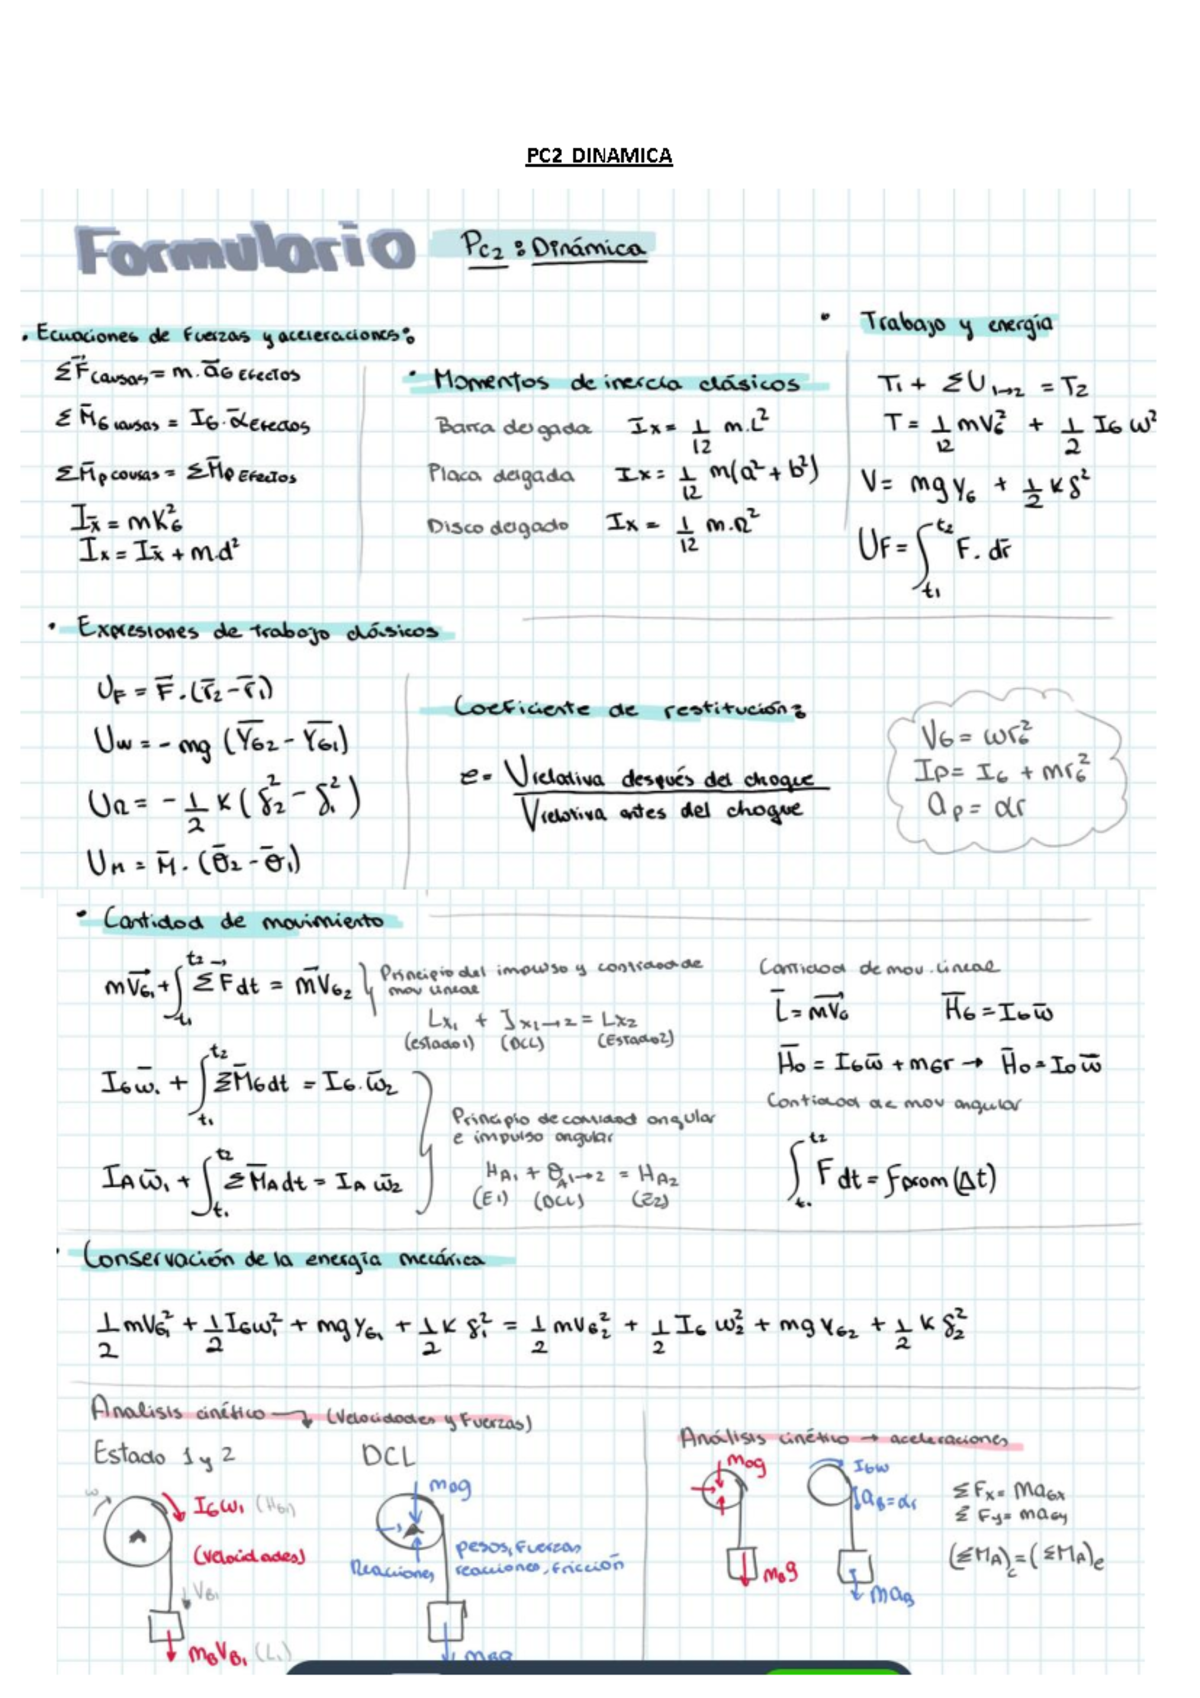 PC2 DINAMICA
Formulario Pc2 : Dinámica
• Ecuaciones de Fuerzas y aceleraciones:
ΣF⃗causas = m. āG Efectos
Σ M̄G causas = IG. ᾱEfectos
ΣM̄p causas = ΣM̄p Efectos
Ix̄ = mK²G
Ix = Ix̄ + m.d²
• Momentos de inercia clásicos
Barra delgada Ix = 1/12 m.L²
Placa delgada Ix = 1/12 m(a² + b²)
Disco delgado Ix = 1/12 m.R²
• Trabajo y energía
T1 + ΣU1→2 = T2
T = 1/12 mVG² + 1/2 IG ω²
V = mg yG + 1/2 K δ²
UF = ∫t1^t2 F. dr̄
• Expresiones de trabajo clásicos
UF = F̄ . (r̄2 - r̄1)
Uw = - mg (ȲG2 - ȲG1)
UR = - 1/2 K (δ2² - δ1²)
UM = M̄ . (θ̄2 - θ̄1)
Coeficiente de restitución:
e = Vrelativa después del choque
Vrelativa antes del choque
VG = ωrG²
Ip = IG + mrG²
ap = αr
• Cantidad de movimiento
mV⃗G1 + ∫t1^t2 ΣF⃗dt = mV̄G2
Principio del impulso y cantidad de
mov lineal
Lx1 + Jx1→2 = Lx2
(estado1) (DCL) (Estado2)
IGω̄1 + ∫t1^t2 ΣM̄Gdt = IG.ω̄2
Principio de cantidad angular
e impulso angular
IAω̄1 + ∫t1^t2 ΣM̄Adt = IA ω̄2
HA1 + θA1→2 = HA2
(E1) (DCL) (E2)
Cantidad de mov. lineal
L̄ = mV̄G H̄G = IGω̄
H̄o = IGω̄ + mGr → H̄o = Io ω̄
Cantidad de mov angular
∫t1^t2 F dt = Fprom (Δt)
• Conservación de la energía mecánica
1/2 mVG1² + 1/2 IGω1² + mg yG1 + 1/2 K δ1² = 1/2 mVG2² + 1/2 IG ω2² + mg YG2 + 1/2 K δ2²
Analisis cinético → (Velocidades y Fuerzas)
Estado 1 y 2 DCL
ω
IGω1 (HG1)
(velocidades)
VB1
mBVB1 (L1)
mDg
Reacciones
pesos, Fuerzas
reacciones, fricción
Análisis cinético → aceleraciones
mDg
IGω
aB = αr
mBg
maB
ΣFx = maGx
ΣFy = maGy
(ΣMA)c = (ΣMA)e